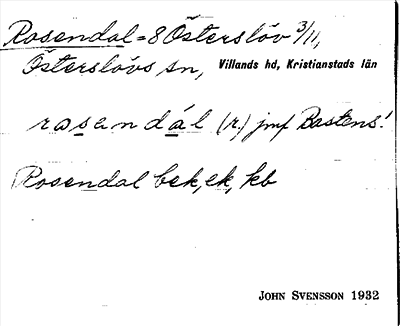 Rosendal = 8 Österslöv 3/11,
Österslövs sn, Villands hd, Kristianstads län
rosandál (r.) jmf Bastens!
Rosendal bek, ek, kb
JOHN SVENSSON 1932